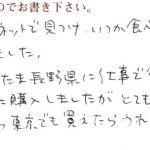 でお書き下さい。
ネットで見つけ、いつか食べ
ました。
たま長野県に仕事で
た購入しましたが とても
東京でも買えたらうれ